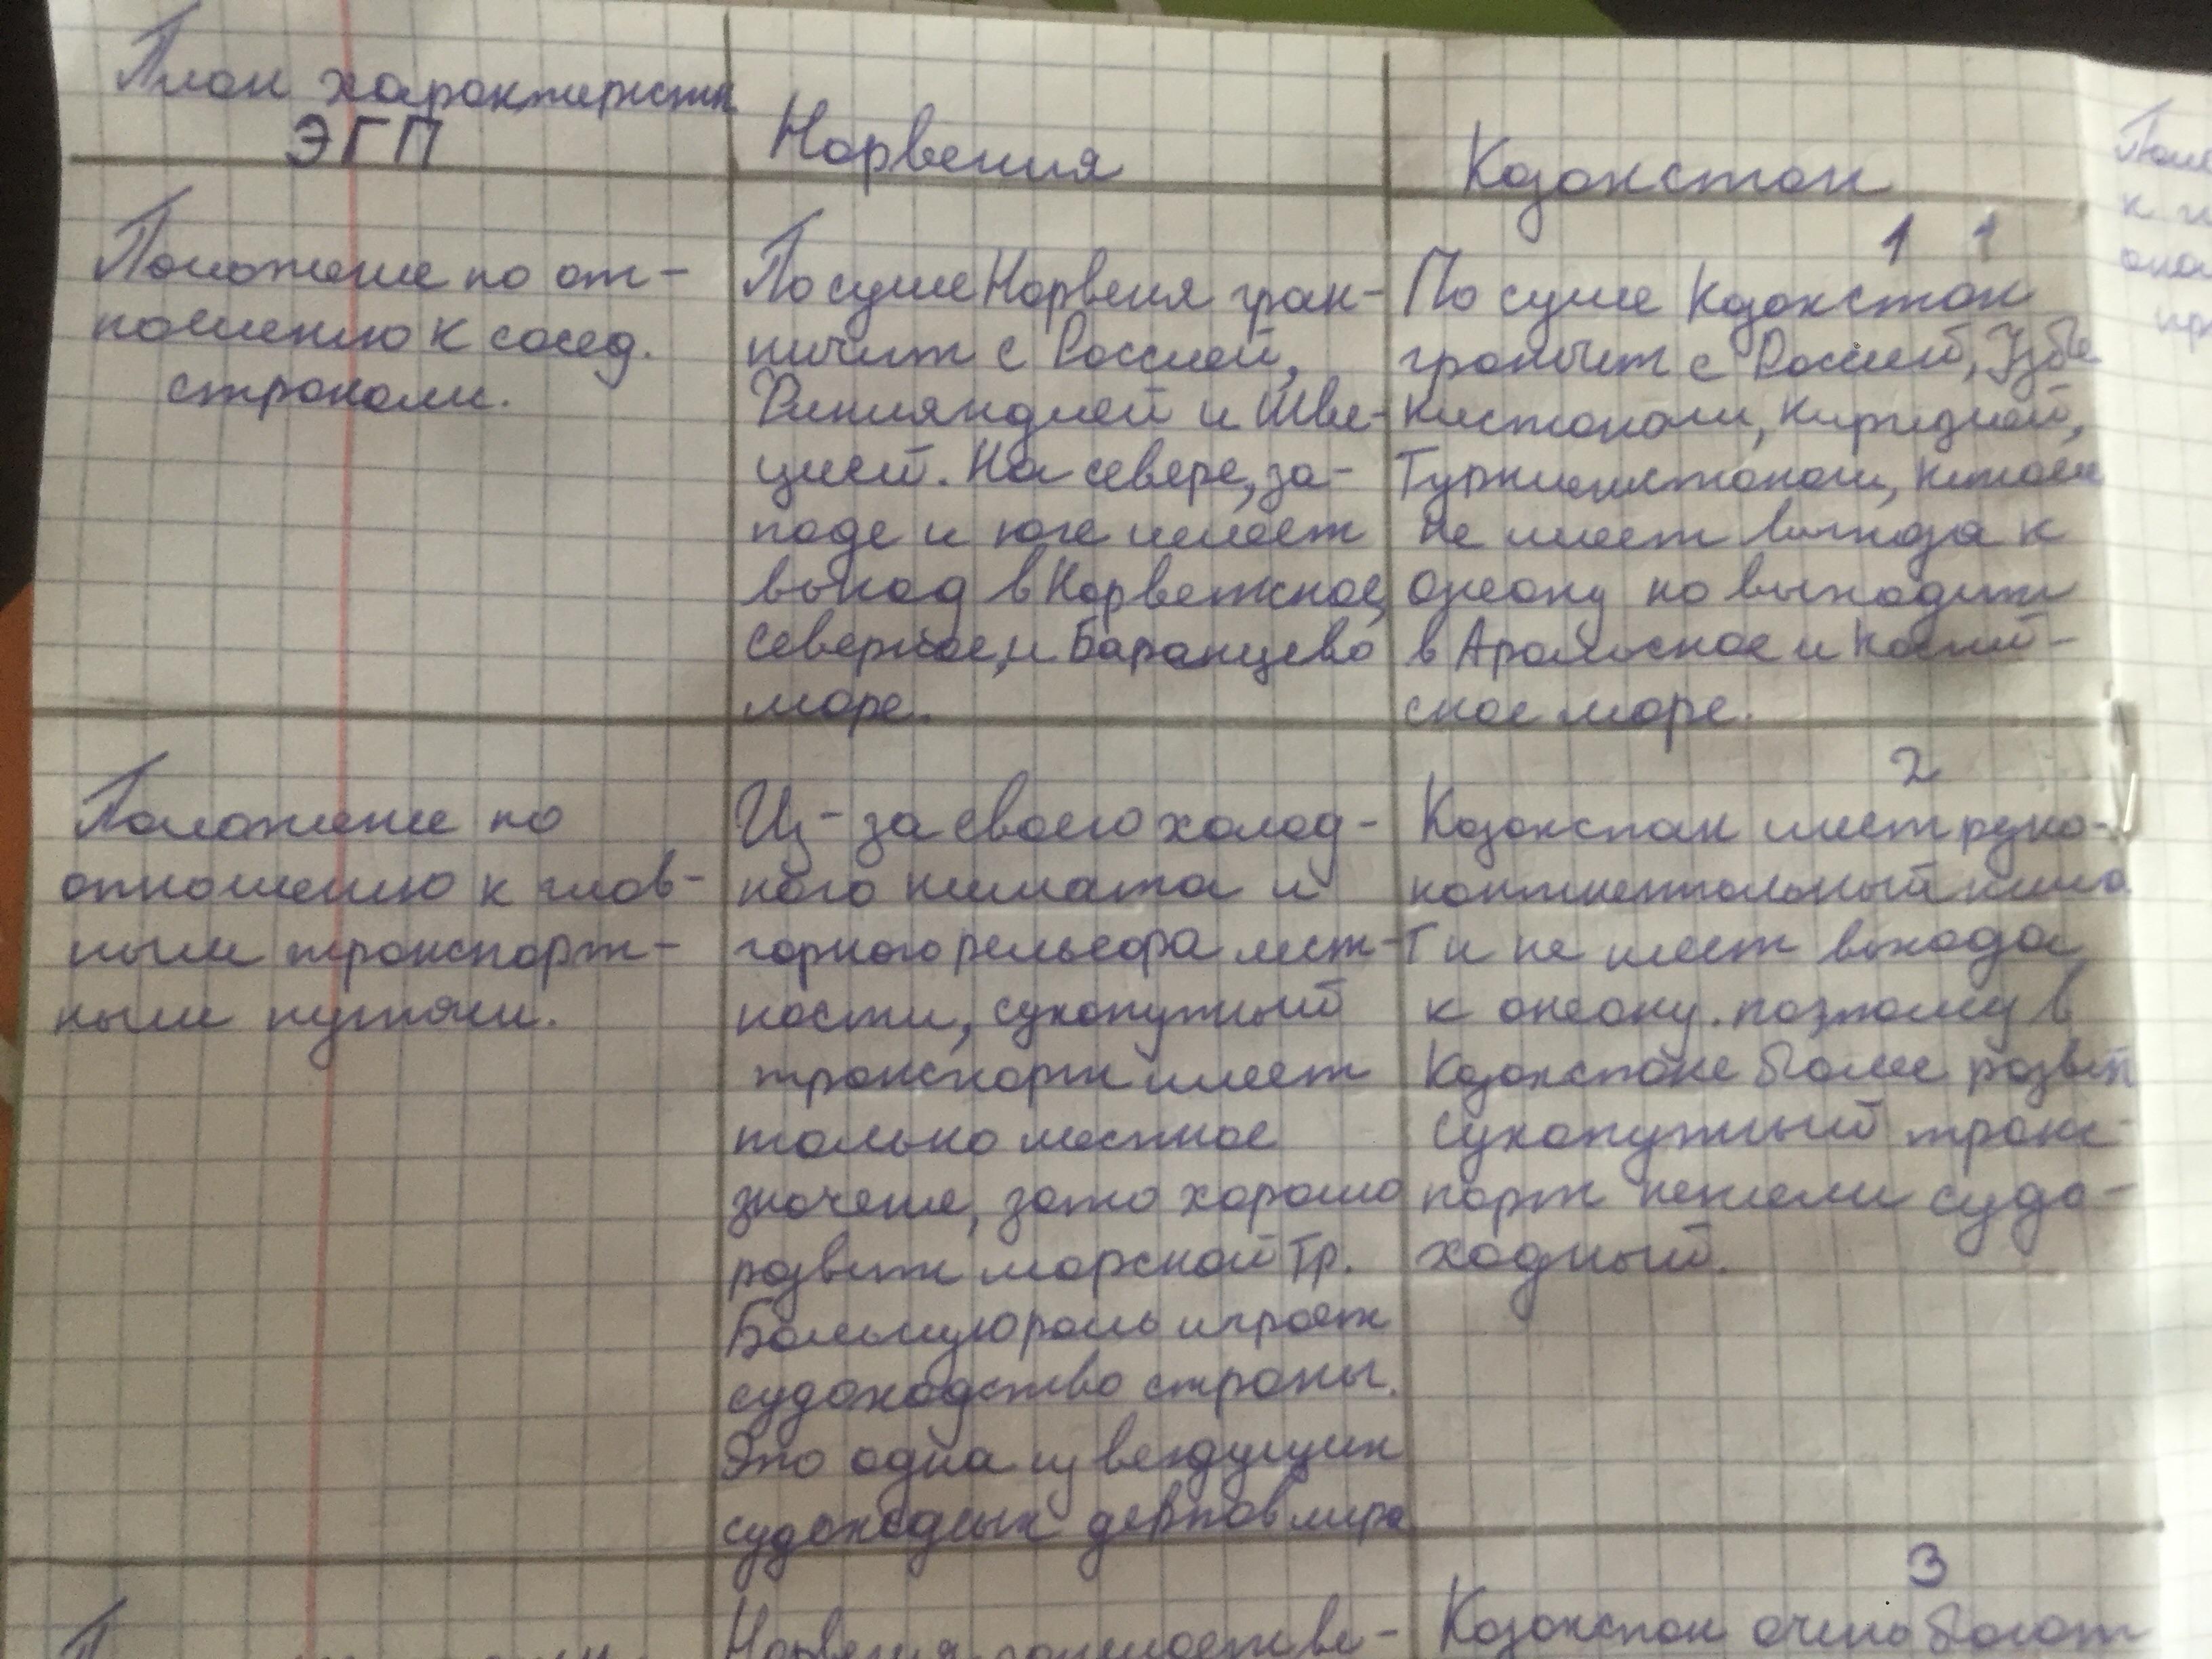 План характеристи
ЭГП
Норвегия
Казахстан
Положение по от-
ношению к сосед.
странами.
По суше Норвегия гран-
ничит с Россией,
Финляндией и Шве-
цией. На севере, за-
паде и юге имеет
выход в Норвежское,
Северное, и Баранцево
море.
1 1
По суше Казахстан
граничит с Россией, Узбе
кистаном, Киргизией,
Туркменистаном, Китаем
Не имеет выхода к
Океану но выходит
в Аральское и Каспий-
ское море.
Положение по
отношению к глав-
ными транспорт-
ными путями.
Из-за своего холод-
ного климата и
горного рельефа мест-
ности, сухопутный
транспорт имеет
только местное
значение, зато хорошо
развит морской Тр.
Большую роль играет
судоходство страны.
Это одна из ведущих
судоходных держав мира
2
Казахстан имеет
континентальный клима
Т и не имеет выхода
к океану. поэтому в
Казахстане более развит
сухопутный транс-
порт нежели судо-
ходный.
Норвегия
3
Казахстан очень богат